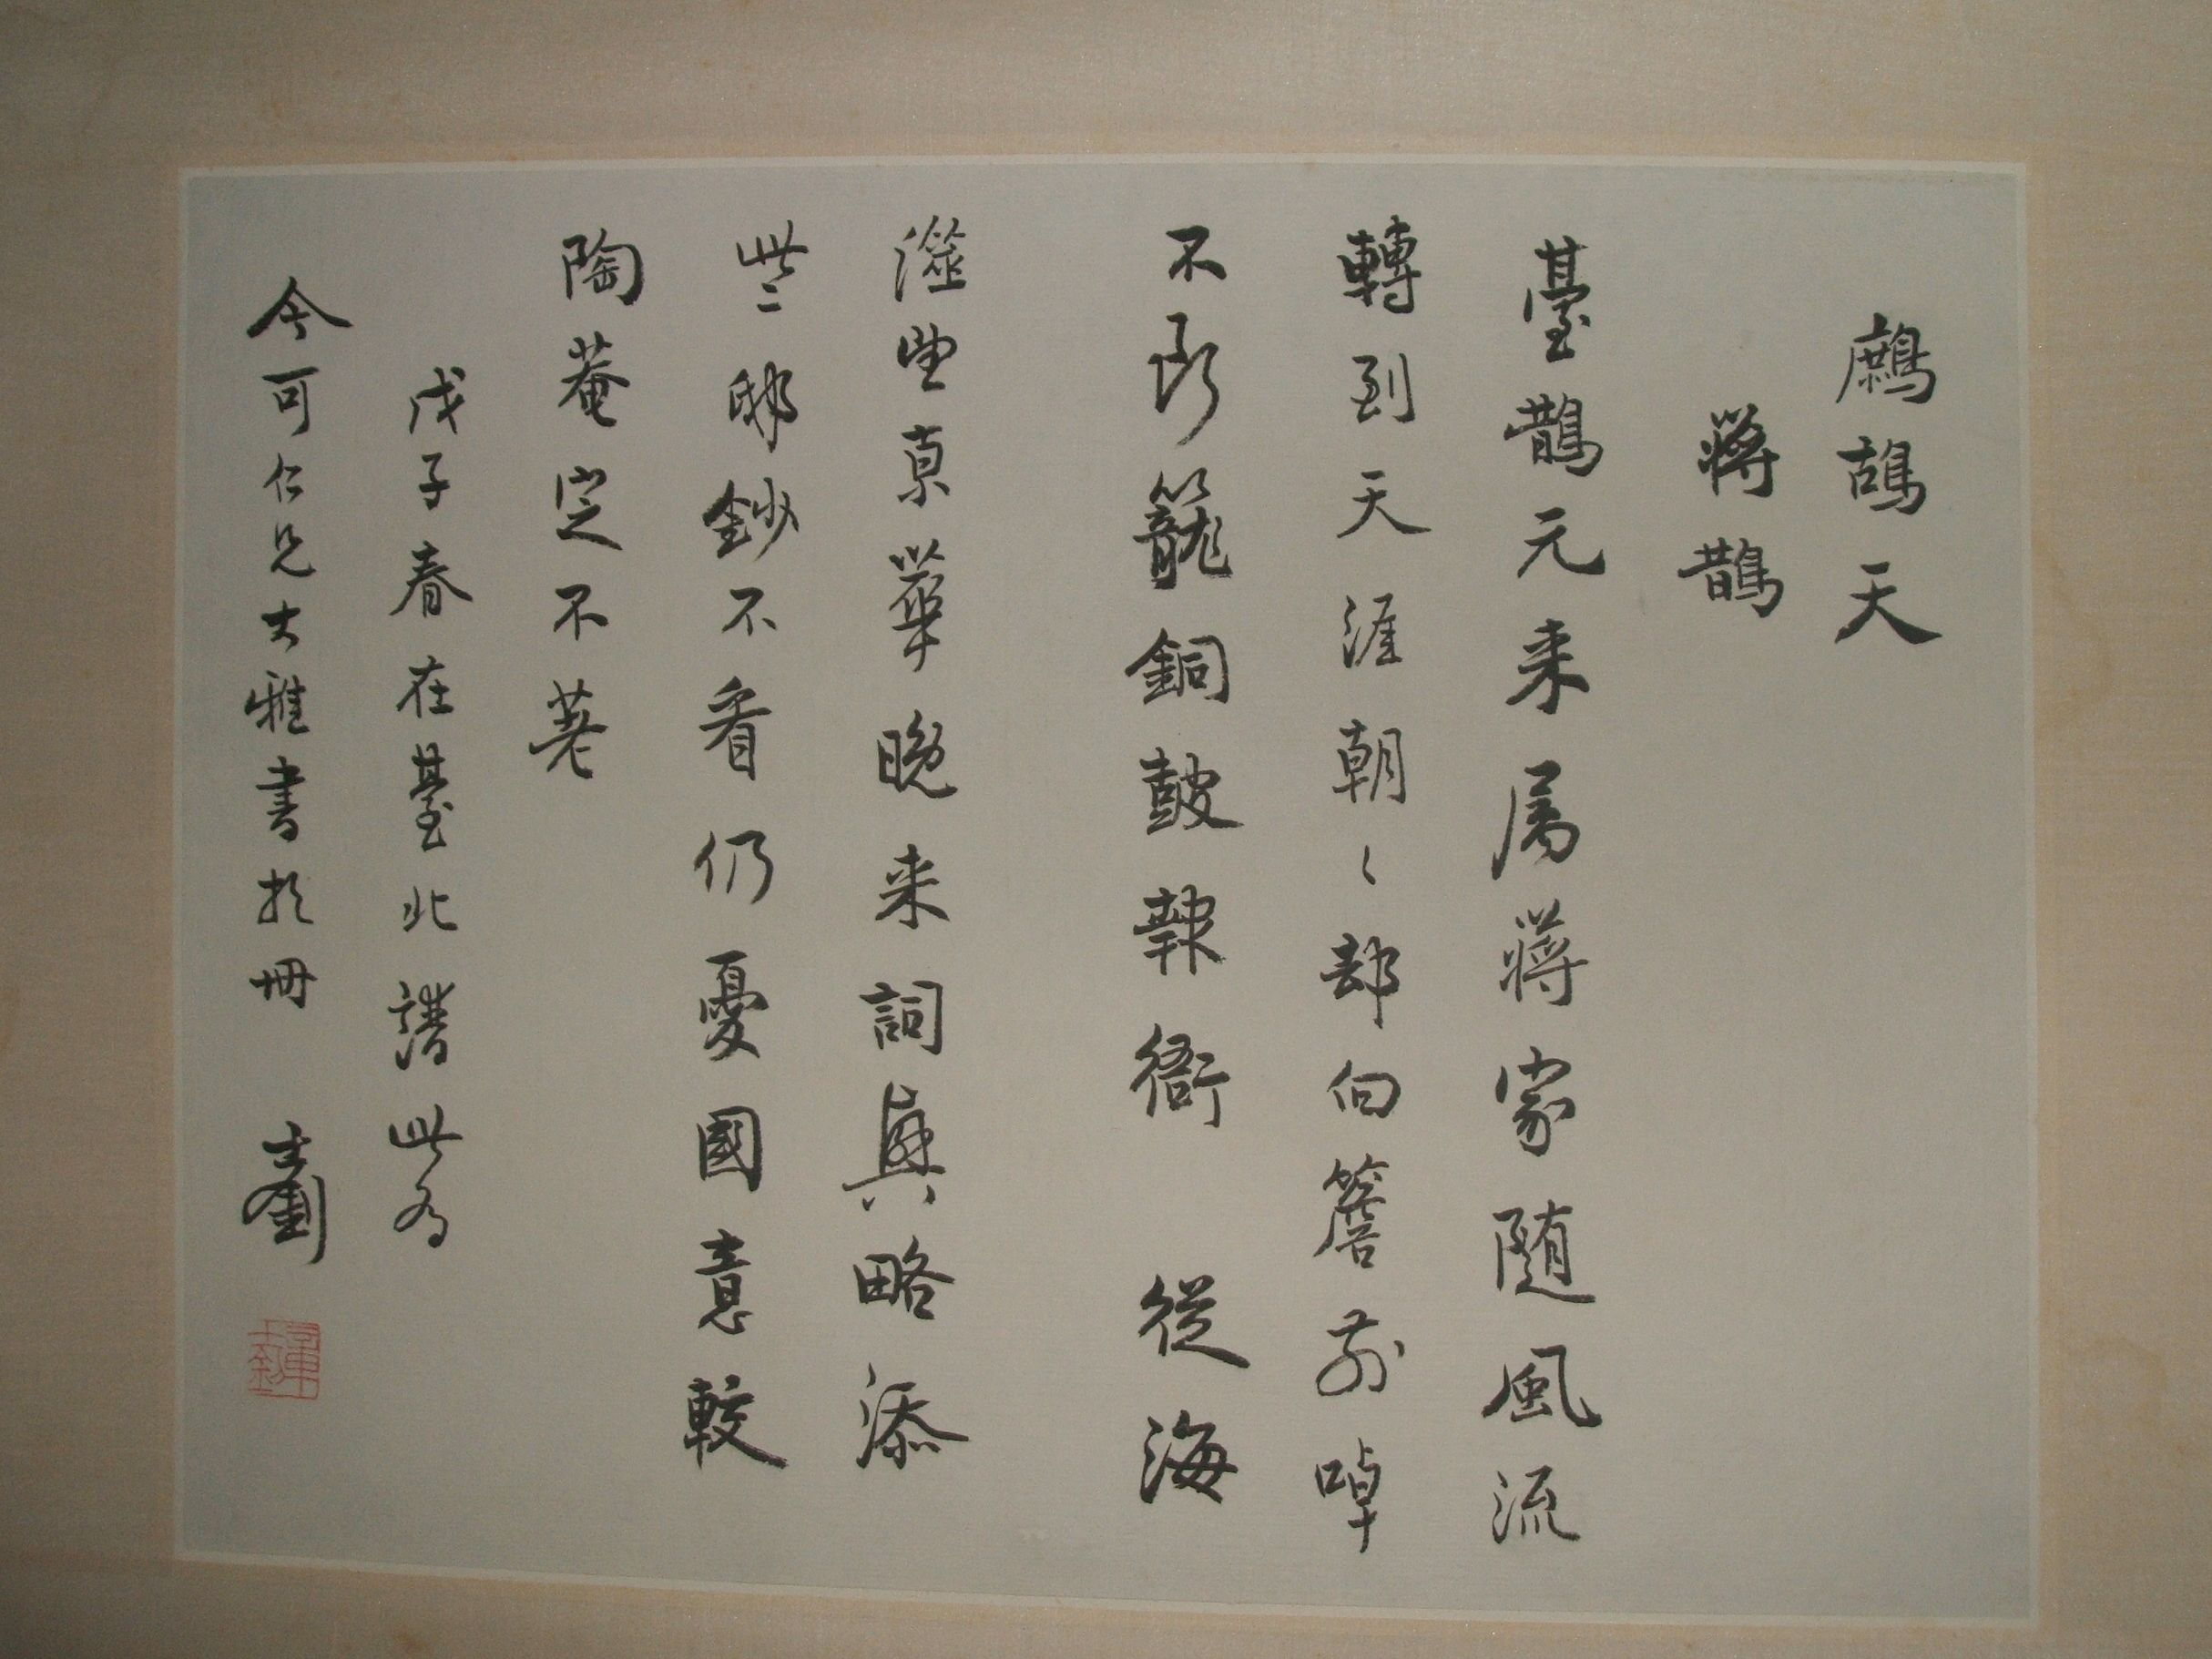 鷓鴣天
蔣鵲
臺鵲元来屬蔣家随風流
轉到天涯朝〻却向簷前啅
不籠銅鼓報衙 從海
澨望京華晚来詞興略添
些邸鈔不看仍憂國意較
陶菴定不差
戊子春在臺北譜此為
今可仁兄大雅書於冊 士釗